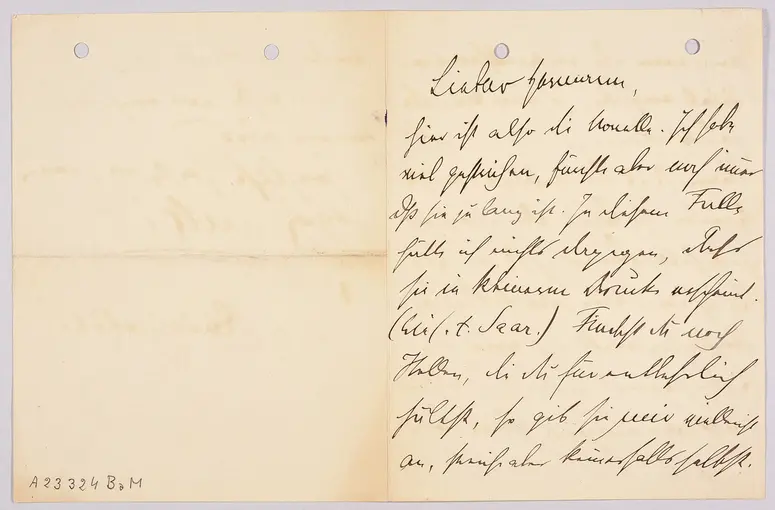 Lieber Hermann,
hier ist also die Novelle. Ich habe
viel gestrichen, fürchte aber noch immer
daß sie zu lang ist. In diesem Falle
hätte ich nichts dagegen, daß
sie in kleinerem Drucke erscheint.
(wie f. v. Saar.) Findest du noch
Stellen, die du für entbehrlich
hältst, so gib sie mir vielleicht
an, streich aber keinesfalls selbst.
A 23324 BaM